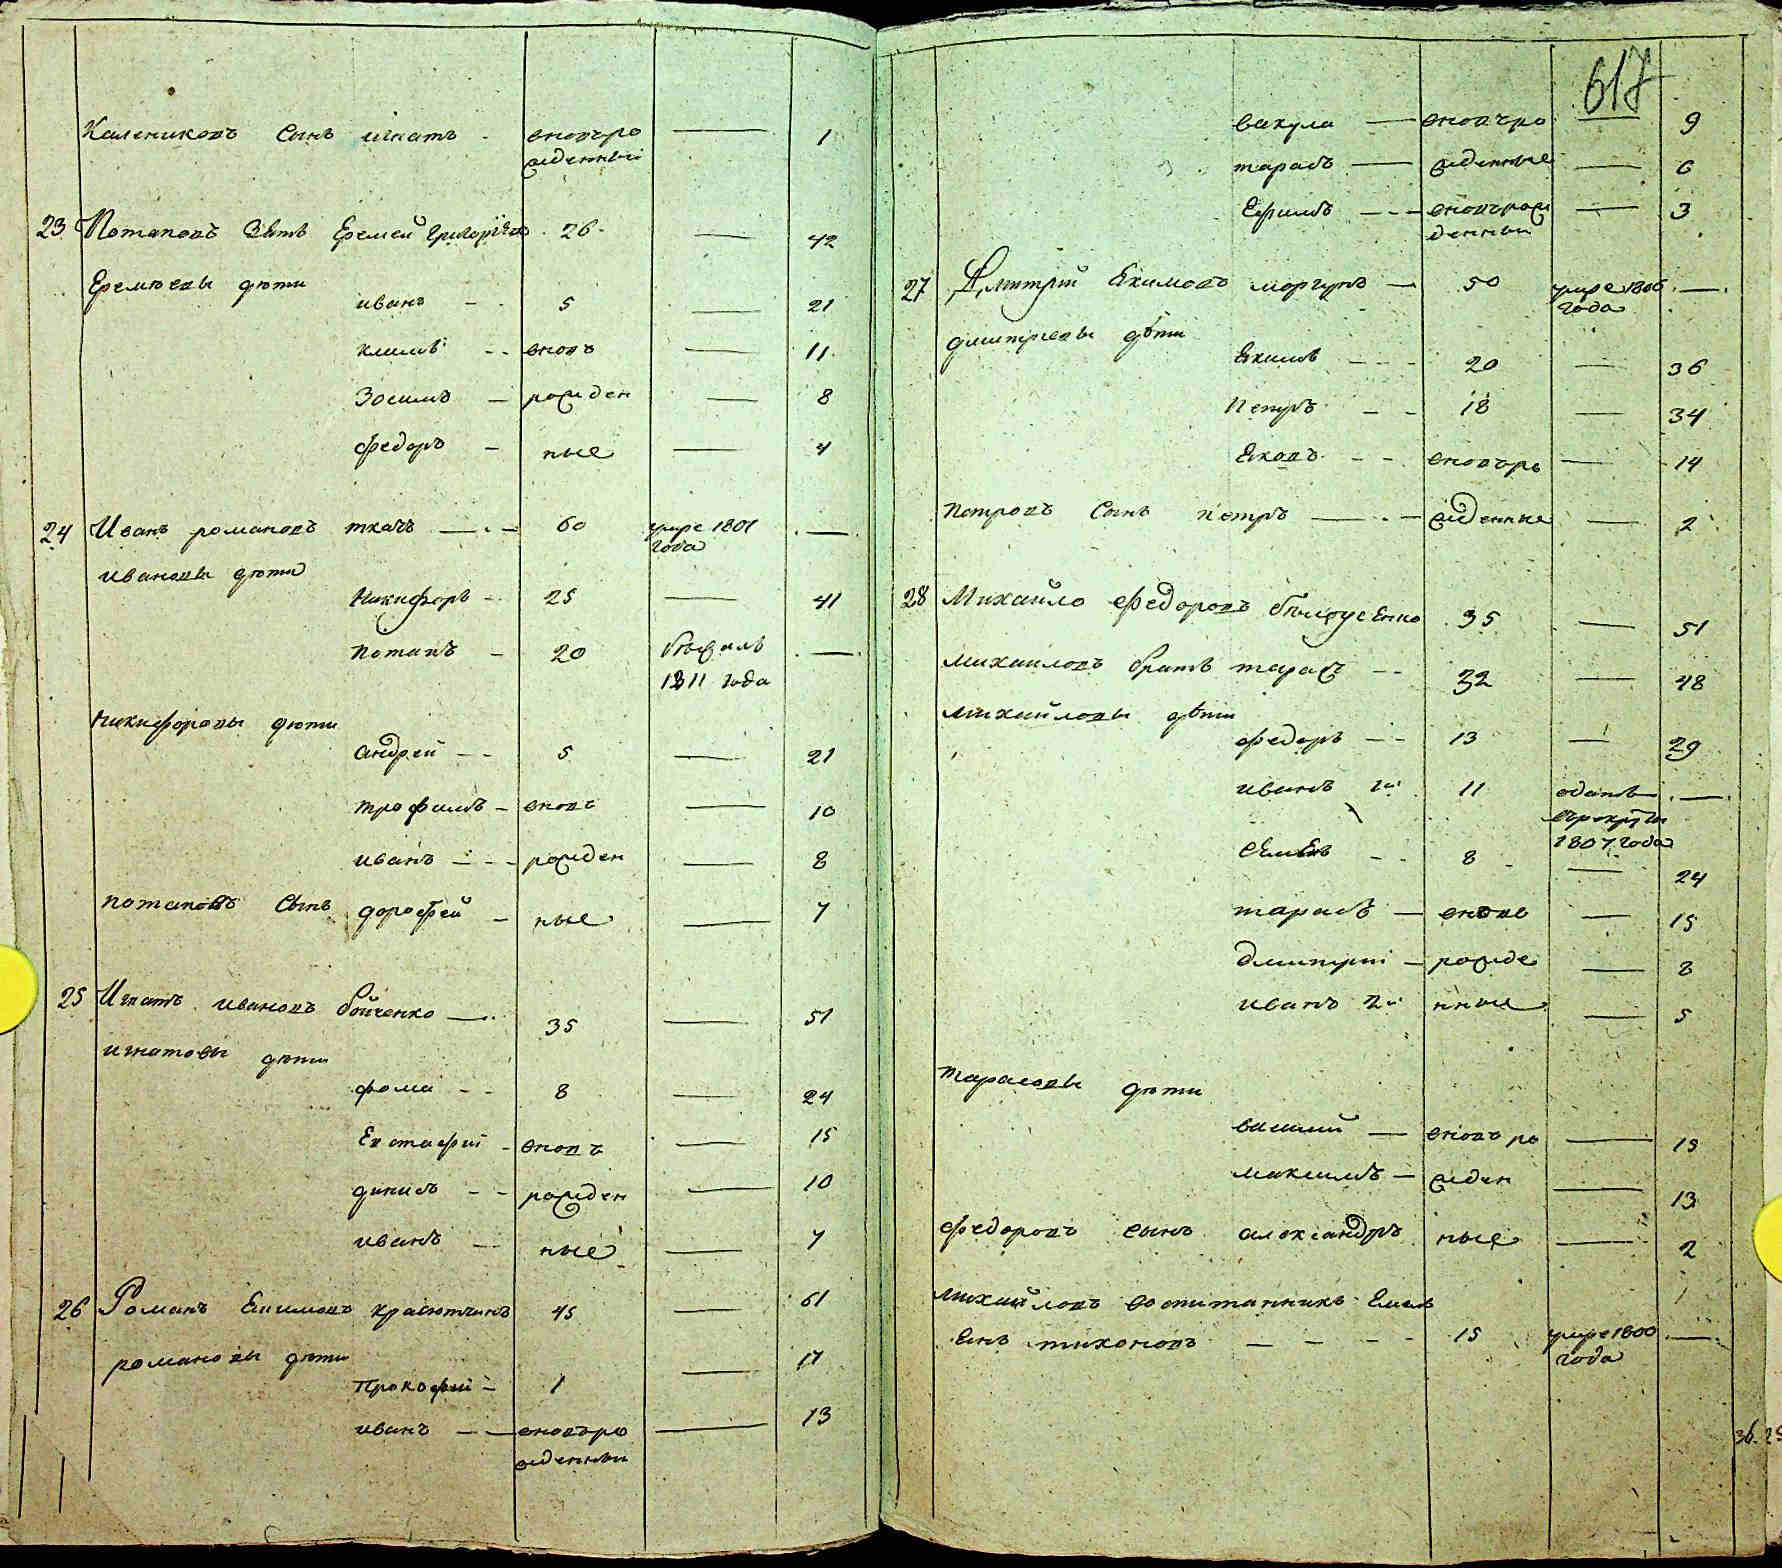 Калениковъ Сынъ игнатъ - вновъро — 1
жденный
23 Потаповъ Зять Еремей григорiевъ 26 — 42
Еремѣевы дѣти
иванъ - - 5 — 21
климъ - - вновъ — 11
Зосимъ — рожден — 8
федоръ — ные — 4
24 Иванъ романовъ ткачъ — 60 умре 1801 —
года
ивановы дѣти
Никифоръ - 25 — 41
потапъ - 20 бѣжалъ —
1811 года
никифоровы дѣти
андрей - - 5 — 21
трофимъ - вновъ — 10
иванъ - - - рожден — 8
потаповъ Сынъ дорофей - ные — 7
25 Игнатъ ивановъ бойченко — 35 — 51
игнатовы дѣти
фома - - 8 — 24
Евстафий - вновъ — 15
динисъ - - рожден — 10
иванъ - - ные — 7
26 Романъ Екимовъ 45 — 61
романовы дѣти
Прокофий - 1 — 17
иванъ - - вновъро — 13
жденный
617
вакула — вновъро — 9
тарасъ — жденные — 6
Ефимъ - - - вновърож — 3
денный
27 Дмитрiй Екимовъ моргунъ — 50 умре 1806 —
года
дмитриевы дѣти
Екимъ - - - 20 — 36
Петръ - - 18 — 34
Яковъ - - вновъро — 14
петровъ Сынъ петръ — жденные — 2
28 Михайло Федоровъ бѣлоусенко 35 — 51
михаиловъ братъ тарасъ - - 32 — 48
михайловы дѣти
федоръ - - 13 — 29
иванъ 1й 11 отданъ —
врекруты
1807 года
Семенъ - - 8 — 24
тарасъ — вновъ — 15
дмитрий — рожде — 8
иванъ 2й нные — 5
тарасовы дѣти
василий — вновъ ро — 15
максимъ — жден — 13
федоровъ сынъ александръ ные — 2
михайловъ воспитанникъ Емел
янъ тихоновъ - - - - 15 умре 1800 —
года